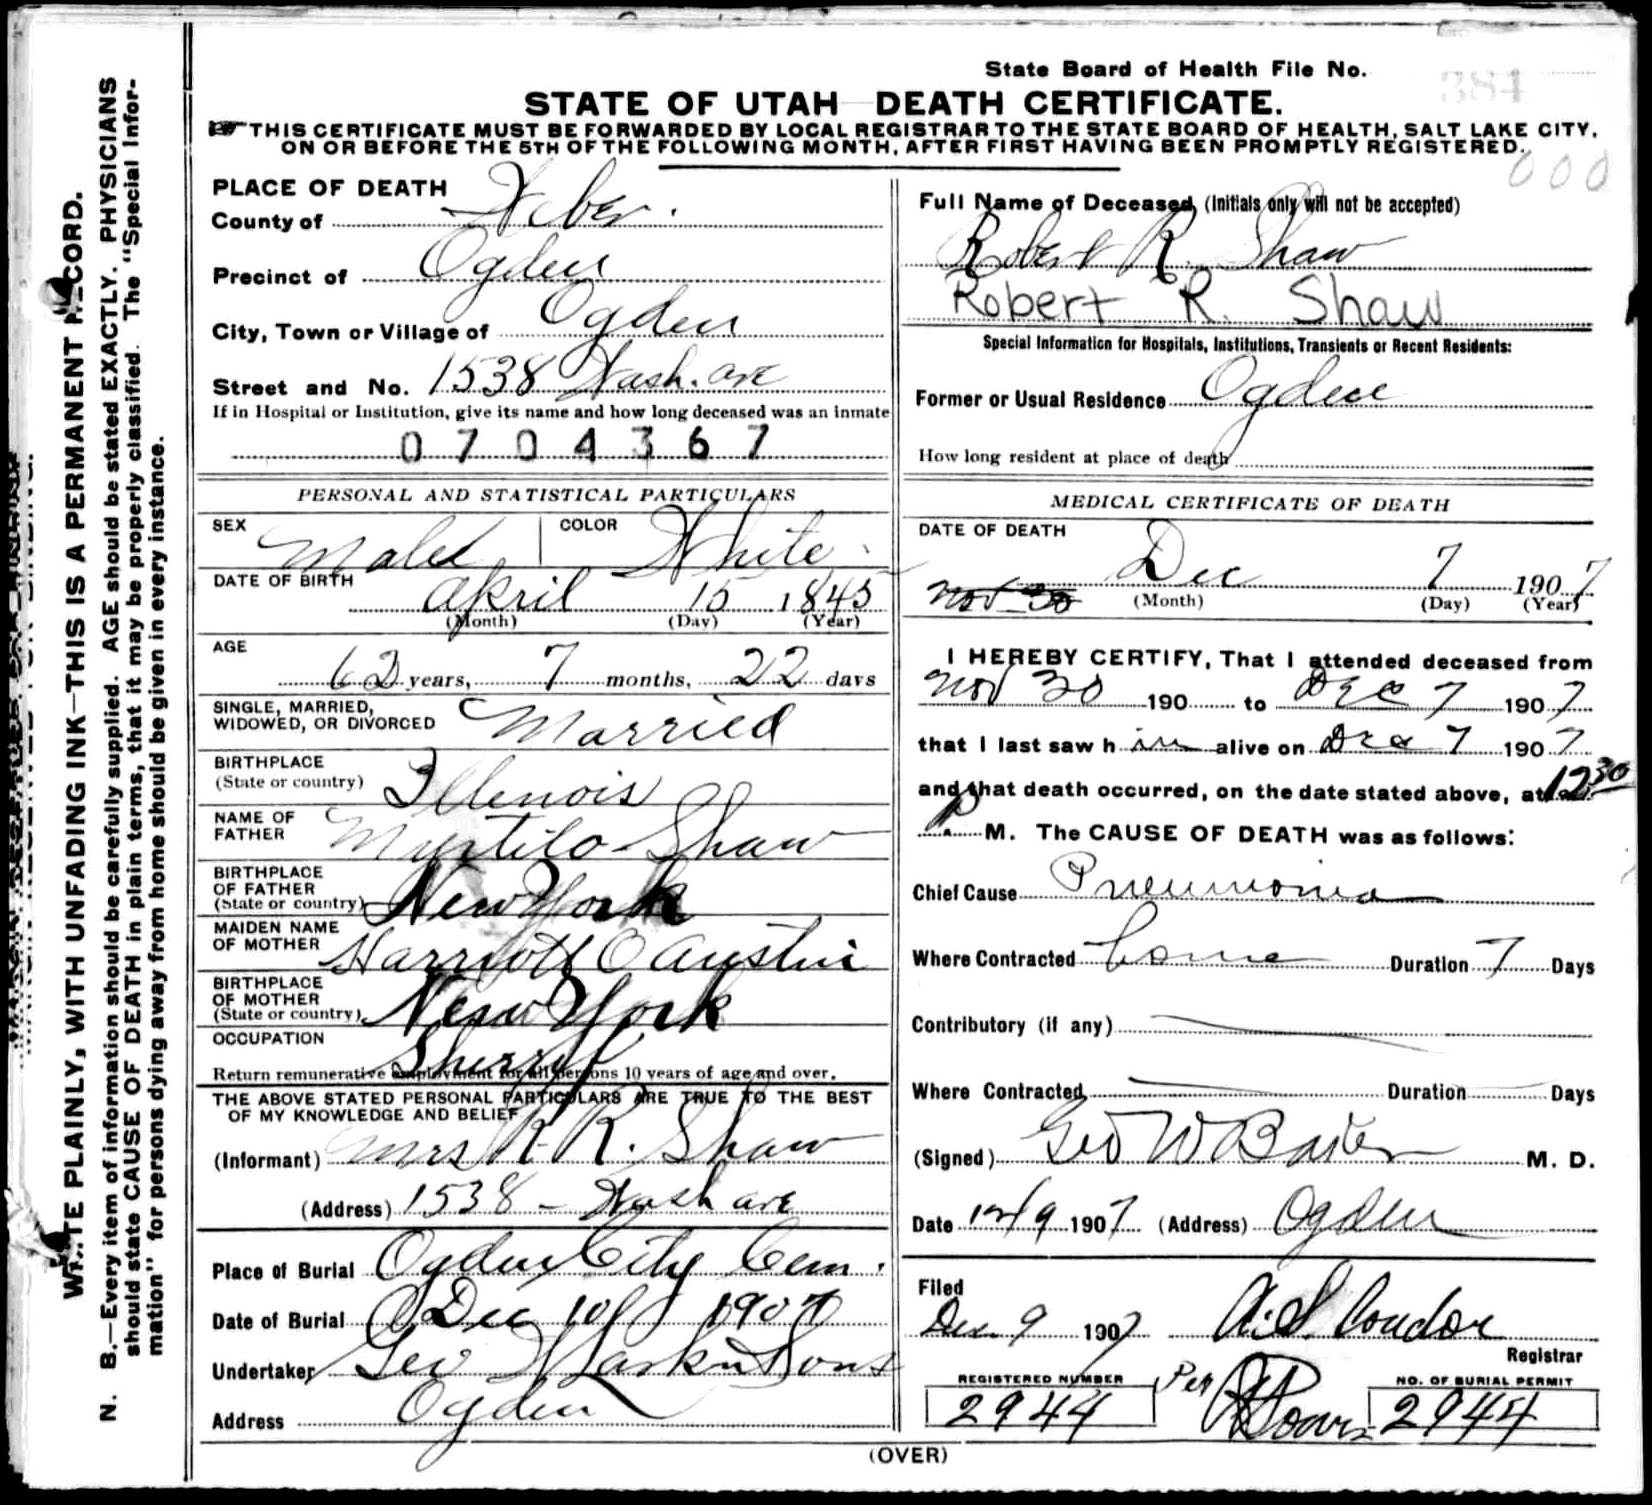 State Board of Health File No. 384
STATE OF UTAH DEATH CERTIFICATE.
THIS CERTIFICATE MUST BE FORWARDED BY LOCAL REGISTRAR TO THE STATE BOARD OF HEALTH, SALT LAKE CITY,
ON OR BEFORE THE 5TH OF THE FOLLOWING MONTH, AFTER FIRST HAVING BEEN PROMPTLY REGISTERED.
000
WRITE PLAINLY, WITH UNFADING INK—THIS IS A PERMANENT RECORD.
N. B.—Every item of information should be carefully supplied. AGE should be stated EXACTLY. PHYSICIANS
should state CAUSE OF DEATH in plain terms, that it may be properly classified. The "Special Infor-
mation" for persons dying away from home should be given in every instance.
PLACE OF DEATH
County of Weber.
Precinct of Ogden
City, Town or Village of Ogden
Street and No. 1538 Wash. ave
If in Hospital or Institution, give its name and how long deceased was an inmate
0704367
PERSONAL AND STATISTICAL PARTICULARS
SEX Male COLOR White
DATE OF BIRTH
April 15 1845
(Month) (Day) (Year)
AGE
62 years, 7 months, 22 days
SINGLE, MARRIED,
WIDOWED, OR DIVORCED Married
BIRTHPLACE
(State or country) Illenois
NAME OF
FATHER Myrtilo Shaw
BIRTHPLACE
OF FATHER
(State or country) New York
MAIDEN NAME
OF MOTHER Harriott O Austin
BIRTHPLACE
OF MOTHER
(State or country) New York
OCCUPATION
Return remunerative employment for all persons 10 years of age and over.
THE ABOVE STATED PERSONAL PARTICULARS ARE TRUE TO THE BEST
OF MY KNOWLEDGE AND BELIEF
(Informant) Mrs R. R. Shaw
(Address) 1538 - Wash ave
Place of Burial Ogden City Cem.
Date of Burial Dec 10 1907
Undertaker Geo Larkin Sons
Address Ogden
Full Name of Deceased (Initials only will not be accepted)
Robert R. Shaw
Robert R. Shaw
Special Information for Hospitals, Institutions, Transients or Recent Residents:
Former or Usual Residence Ogden
How long resident at place of death
MEDICAL CERTIFICATE OF DEATH
DATE OF DEATH
Nov 30 Dec 7 1907
(Month) (Day) (Year)
I HEREBY CERTIFY, That I attended deceased from
Nov 30 190 to Dec 7 1907
that I last saw him alive on Dec 7 1907
and that death occurred, on the date stated above, at 12 30
P. M. The CAUSE OF DEATH was as follows:
Chief Cause Pneumonia
Where Contracted Duration 7 Days
Contributory (if any)
Where Contracted Duration Days
(Signed) Geo W Baker M. D.
Date 12/9 1907 (Address) Ogden
Filed
Dec 9 1907 A. S. Condon
Registrar
REGISTERED NUMBER
2944
Per
NO. OF BURIAL PERMIT
2944
(OVER)